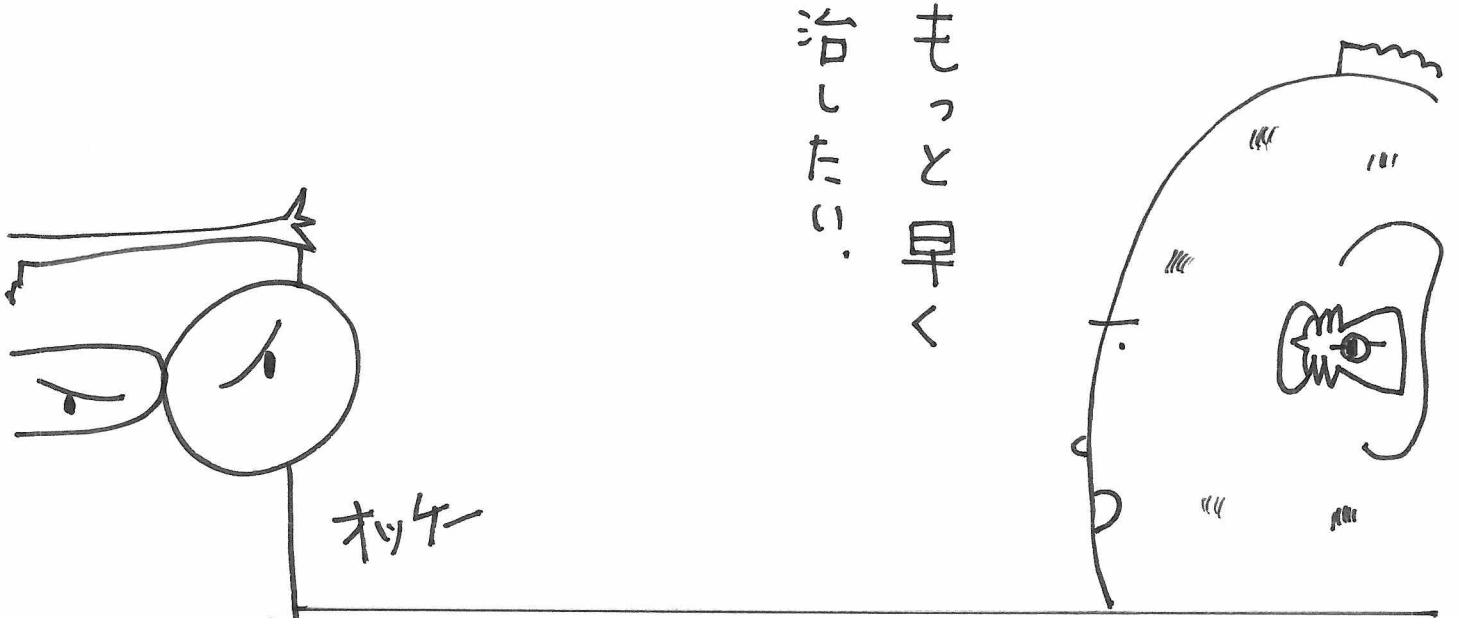 もっと早く
治したい.
オッケー